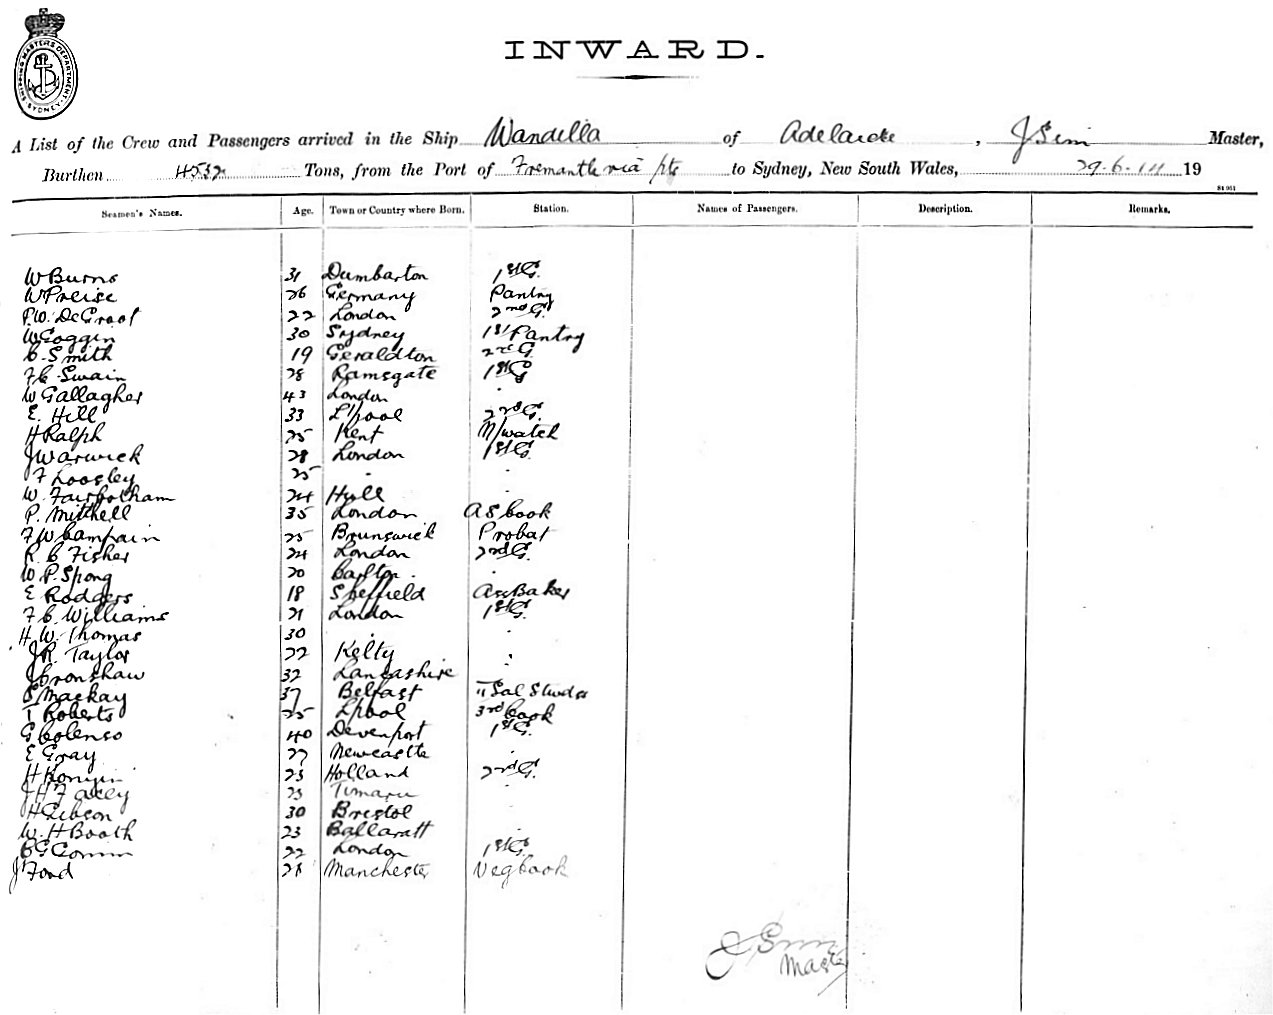 SHIPPING MASTERS DEPARTMENT
SYDNEY
INWARD.
A List of the Crew and Passengers arrived in the Ship Wandilla of Adelaide, J Sim Master,
Burthen 4532 Tons, from the Port of Fremantle via pts to Sydney, New South Wales, 29.6.14 19
Seamen's Names. Age. Town or Country where Born. Station. Names of Passengers. Description. Remarks.
W Burns 31 Dumbarton 1st G.
W Preise 26 Germany Pantry
P.W. DeGroot 22 London 2nd G.
W Goggin 30 Sydney 1st Pantry
C. Smith 19 Geraldton 2nd G
F C Swain 28 Ramsgate 1st G
W Gallagher 43 London "
E. Hill 33 L'pool 2nd G.
H Ralph 25 Kent N/watch
J Warwick 28 London 1st G.
F Loosley 25 " "
W. Fairbotham 24 Hull "
P. Mitchell 35 London A S Cook
F W Campain 25 Brunswick
R. C Fisher 24 London 2nd G.
W P. Spong 20 "
E Rodgers 18 Sheffield Ass Baker
F C Williams 21 London 1st G.
H W. Thomas 30 " "
J R. Taylor 22 Kelty "
J Cronshaw 32 Lancashire "
S Mackay 37 Belfast
T Roberts 25 Lpool 3rd Cook
G Colenso 40 Devenport 1st G.
E Gray 27 Newcastle "
H 23 Holland 2nd G.
J H Facey 23 Timaru "
H Gibson 30 Bristol "
W. H Booth 23 Ballaratt "
C G 22 London 1st G
J Ford 28 Manchester Veg Cook
J Sim
Master